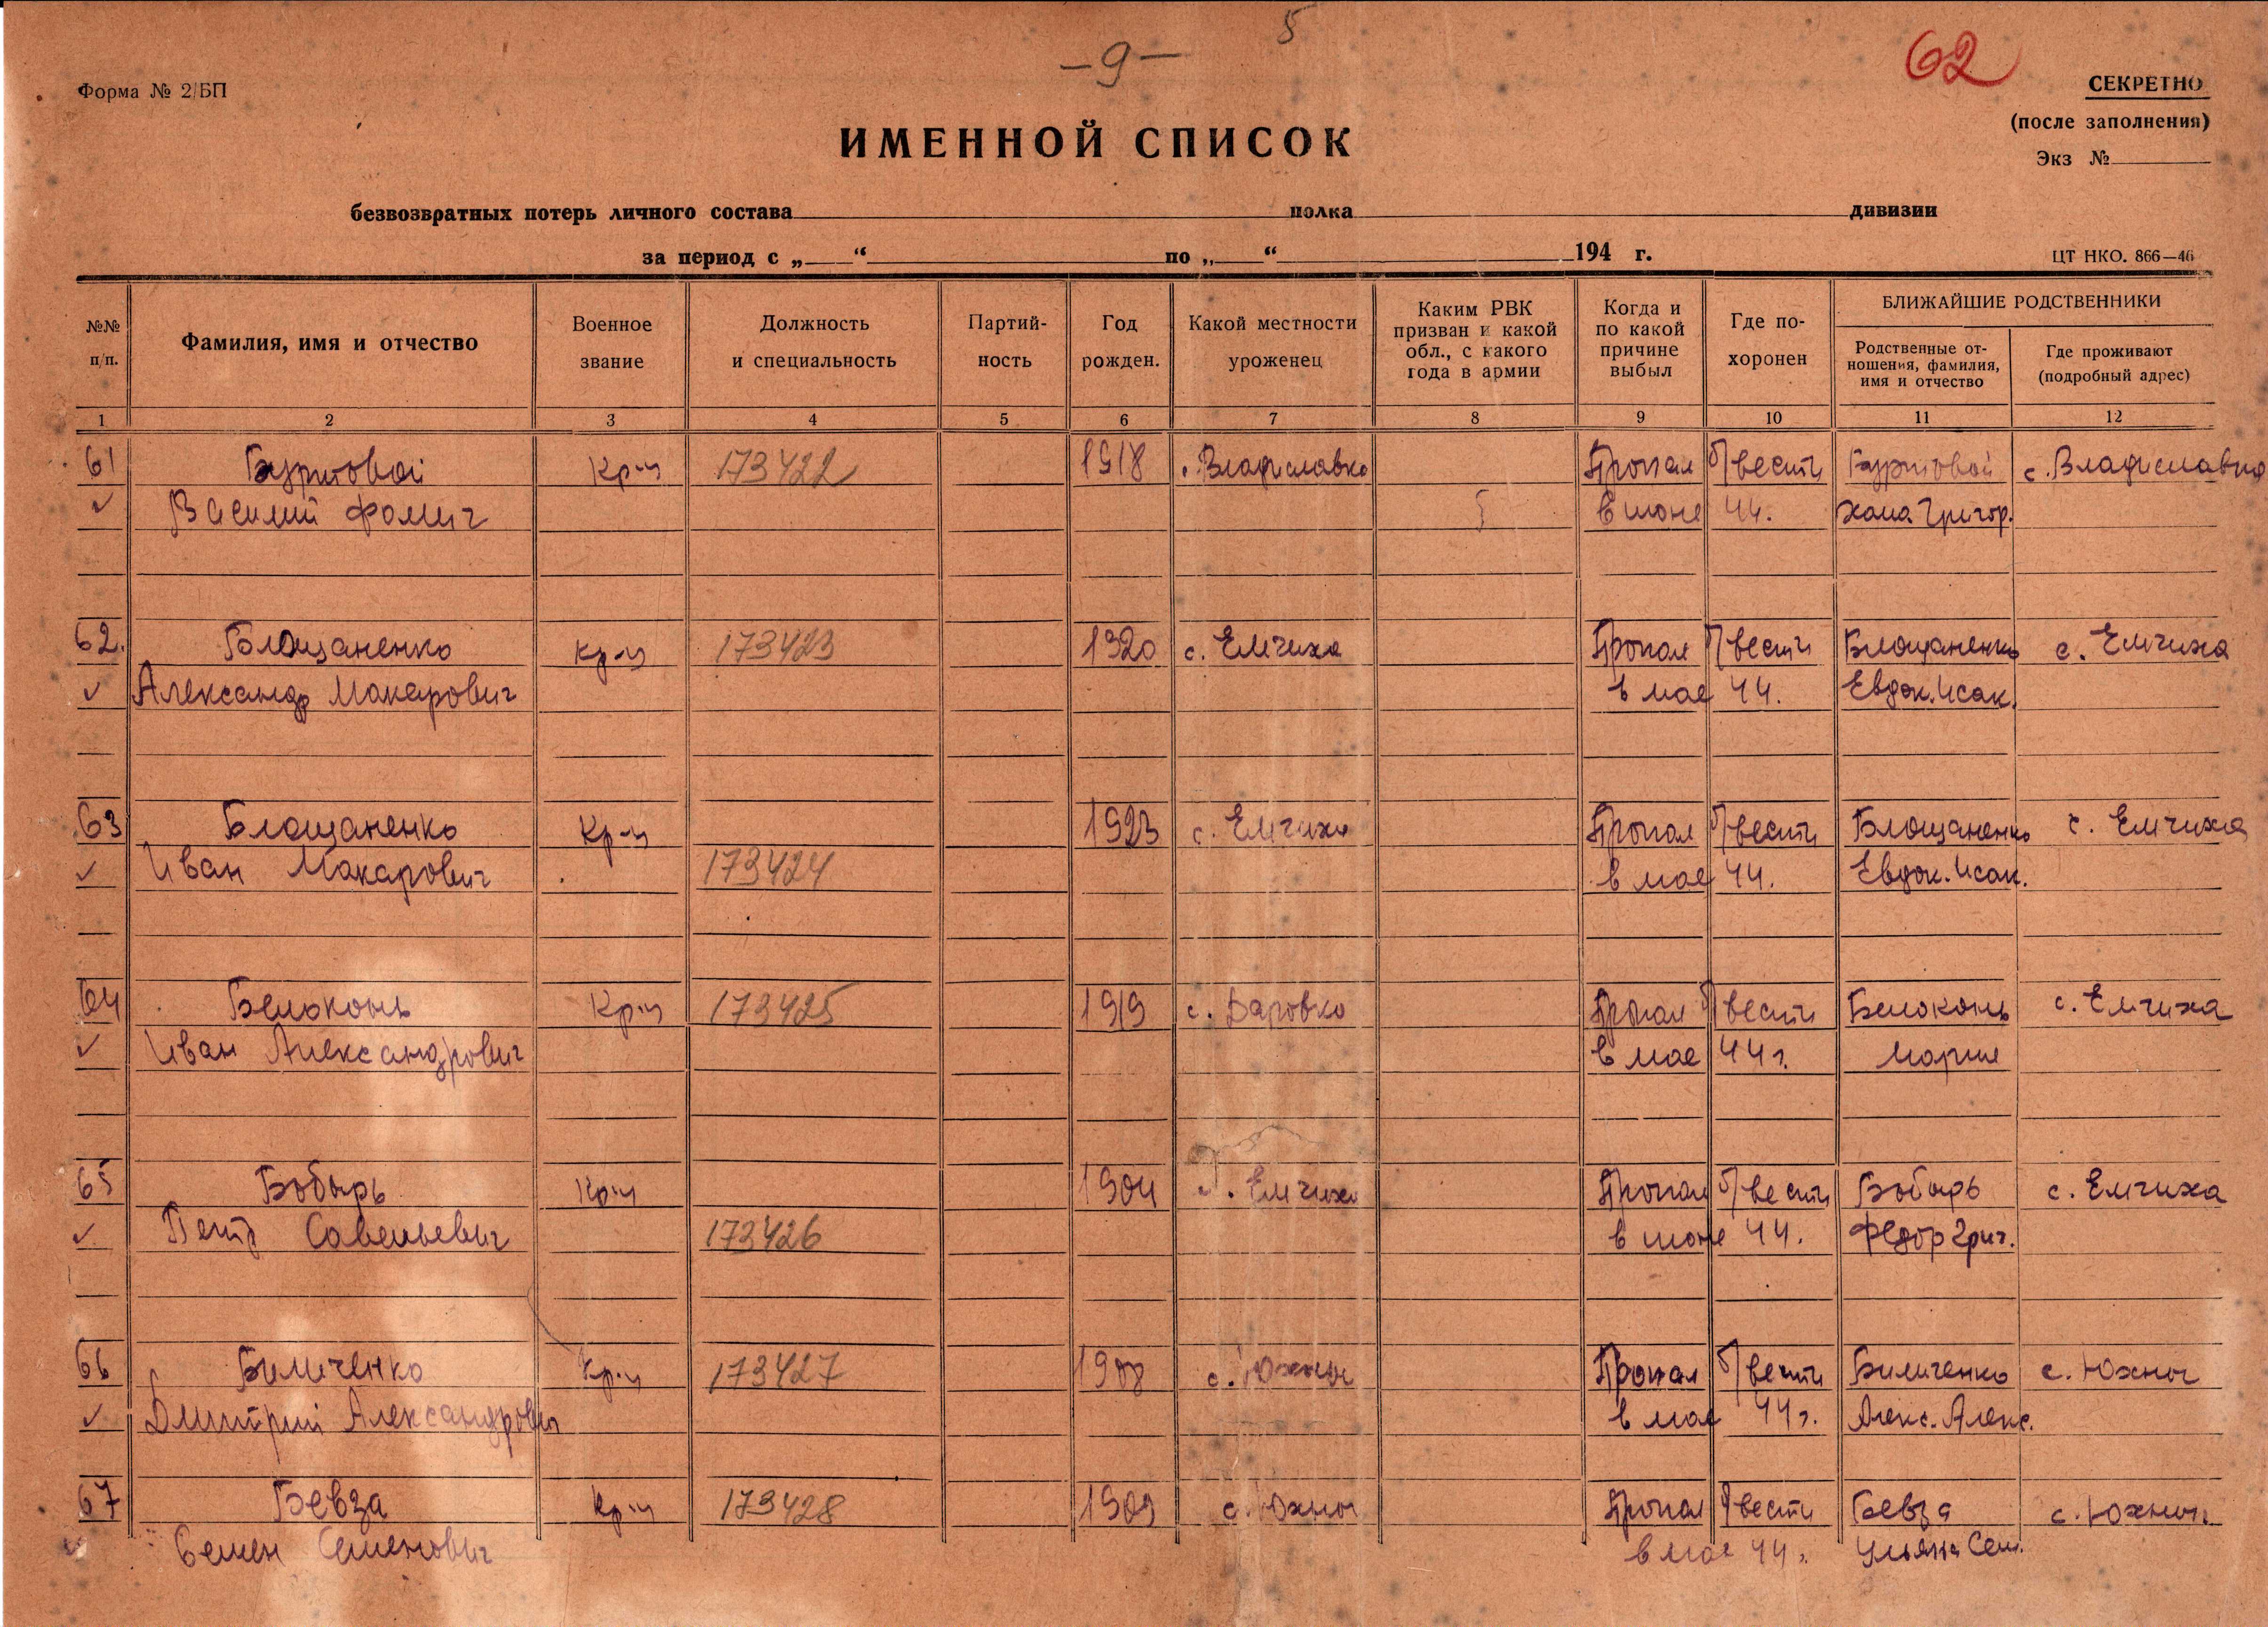 – 9 – 5 62
Форма № 2/БП
СЕКРЕТНО
(после заполнения)
Экз №
ИМЕННОЙ СПИСОК
безвозвратных потерь личного состава полка дивизии
за период с „ “ по „ “ 194 г.
ЦТ НКО. 866—46
№№ п/п.
Фамилия, имя и отчество
Военное звание
Должность и специальность
Партий-
ность
Год рожден.
Какой местности уроженец
Каким РВК
призван и какой
обл., с какого
года в армии
Когда и
по какой
причине
выбыл
Где по-
хоронен
БЛИЖАЙШИЕ РОДСТВЕННИКИ
Родственные от-
ношения, фамилия,
имя и отчество
Где проживают
(подробный адрес)
1 2 3 4 5 6 7 8 9 10 11 12
61 Буртовой Кр-ц 173422 1918 с. Владиславка Пропал б/вести Буртовой с. Владиславка
✓ Василий Фомич в июне 44. Хама Григор.
62. Блощаненко кр-ц 173423 1920 с. Емчиха Пропал б/вести Блощаненко с. Емчиха
✓ Александр Макарович в мае 44. Евдок. Исак.
63 Блощаненко Кр-ц 1923 с. Емчиха Пропал б/вести Блощаненко с. Емчиха
✓ Иван Макарович 173424 в мае 44. Евдок. Исак.
64 Белоконь Кр-ц 173425 1919 с. Пропал б/вести Белоконь с. Емчиха
✓ Иван Александрович в мае 44 г. Мария
65 Бобырь Кр-ц 1904 с. Емчиха Пропал б/вести Бобырь с. Емчиха
✓ Петр Савельевич 173426 в июне 44. Федор Григ.
66 Биличенко Кр-ц 173427 1908 с. Пропал б/вести Биличенко с.
✓ Дмитрий Александрович в мае 44 г. Алекс. Алекс.
67 Бевза Кр-ц 173428 1909 с. Пропал б/вести Бевза с.
✓ Семен Семенович в мае 44 г. Ульяна Сем.